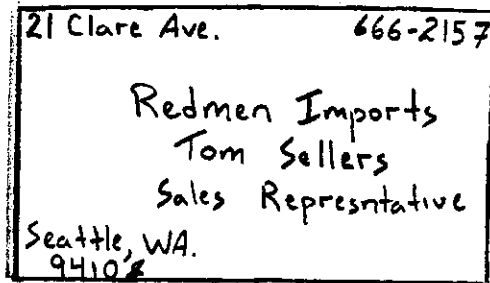 21 Clare Ave. 666-2157
Redmen Imports
Tom Sellers
Sales Represntative
Seattle, WA.